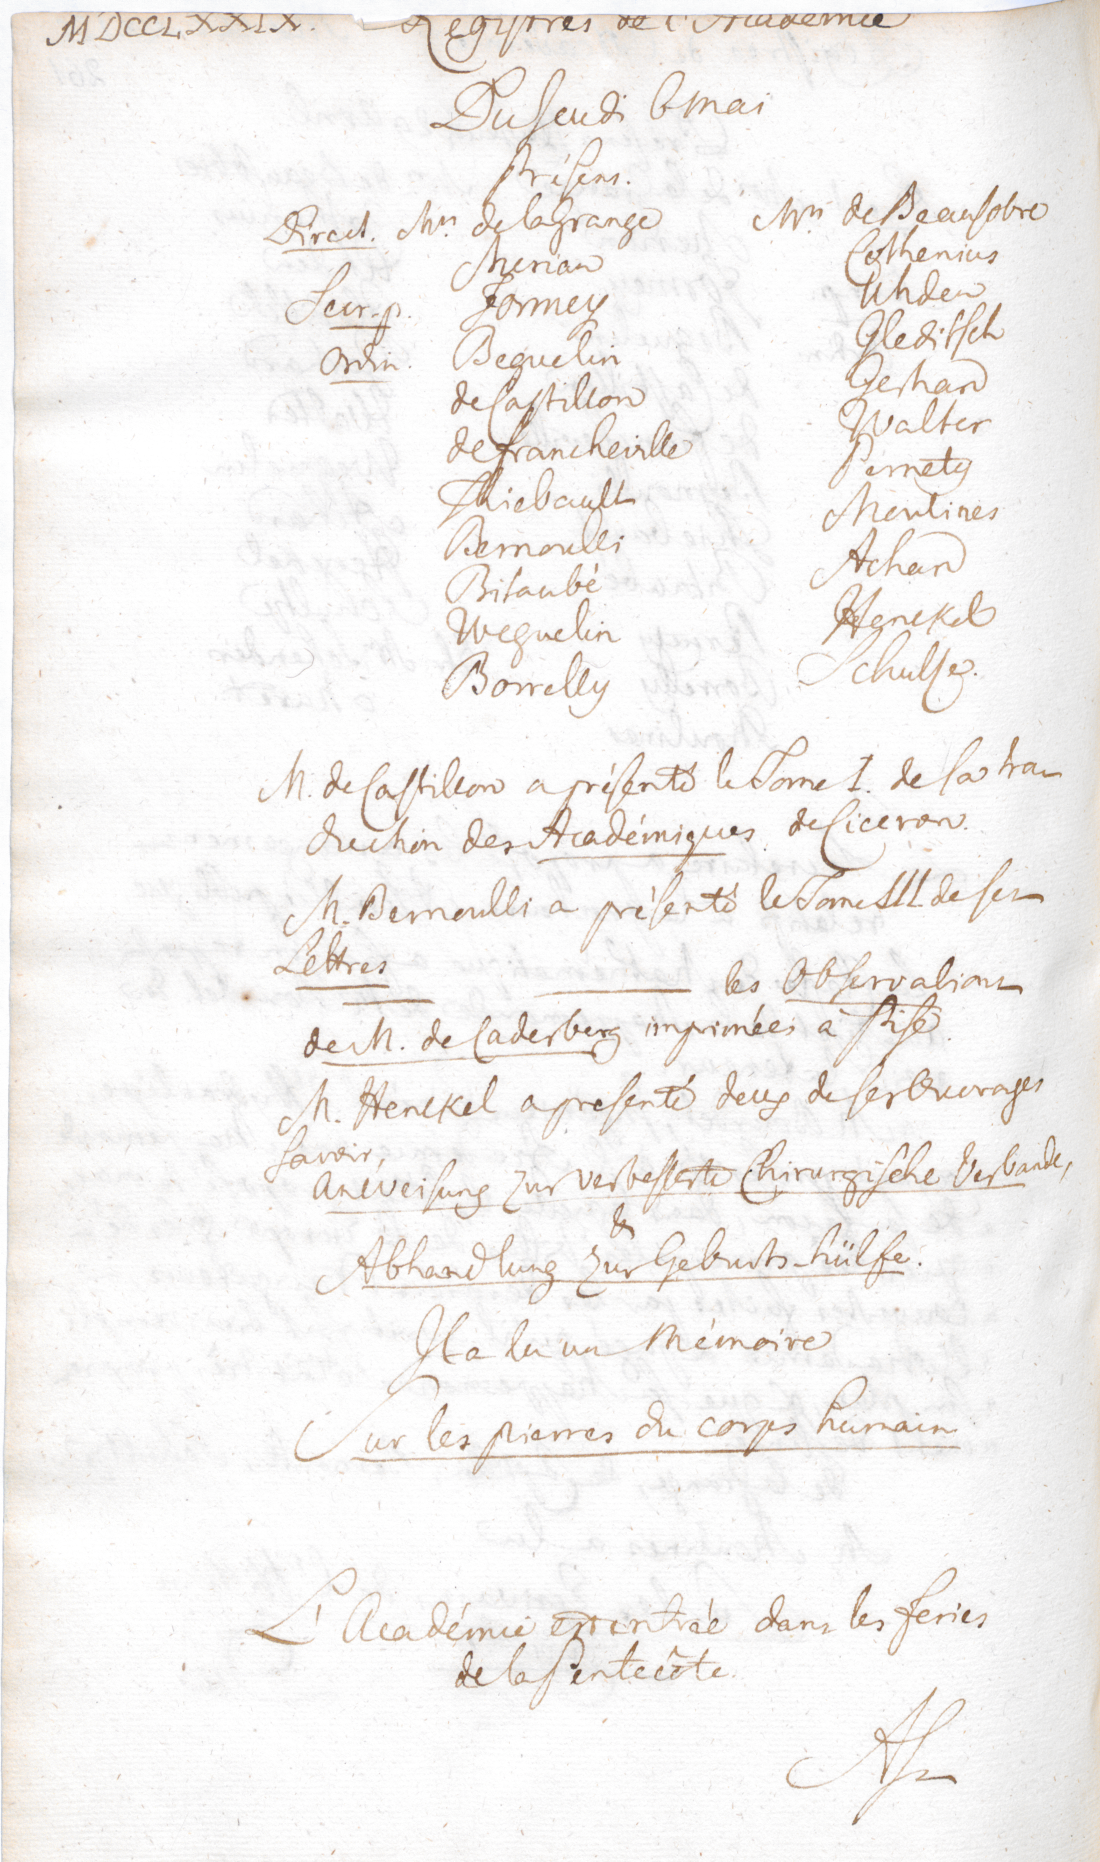 MDCCLXXIX. Registres de l'Académie
Du Jeudi 6 Mai
Présens.
Direct. Mrs. de la Grange
Merian
Secr. p. Formey
Ordin. Beguelin
de Castillon
de Francheville
Thiebault
Bernoulli
Bitaubé
Weguelin
Borrelly
Mrs. de Beausobre
Cothenius
Uhden
Gleditsch
Gerhard
Walter
Pernety
Moulines
Achard
Henckel
Schulze.
M. de Castillon a présenté le Tome I. de sa tra
duction des Académiques de Ciceron.
M. Bernoulli a présenté le Tome III. de ses
Lettres
les Observations
de M. de Caderberg imprimées à Pise
M. Henckel a presenté deux de ses Ouvrages
savoir,
Anweisung zur verbesserte Chirurgische Verbande,
&
Abhandlung zur Geburts-hülfe.
Il a lu un Mémoire
Sur les pierres du corps humain
L'Académie est entrée dans les feries
de la Pentecôte.